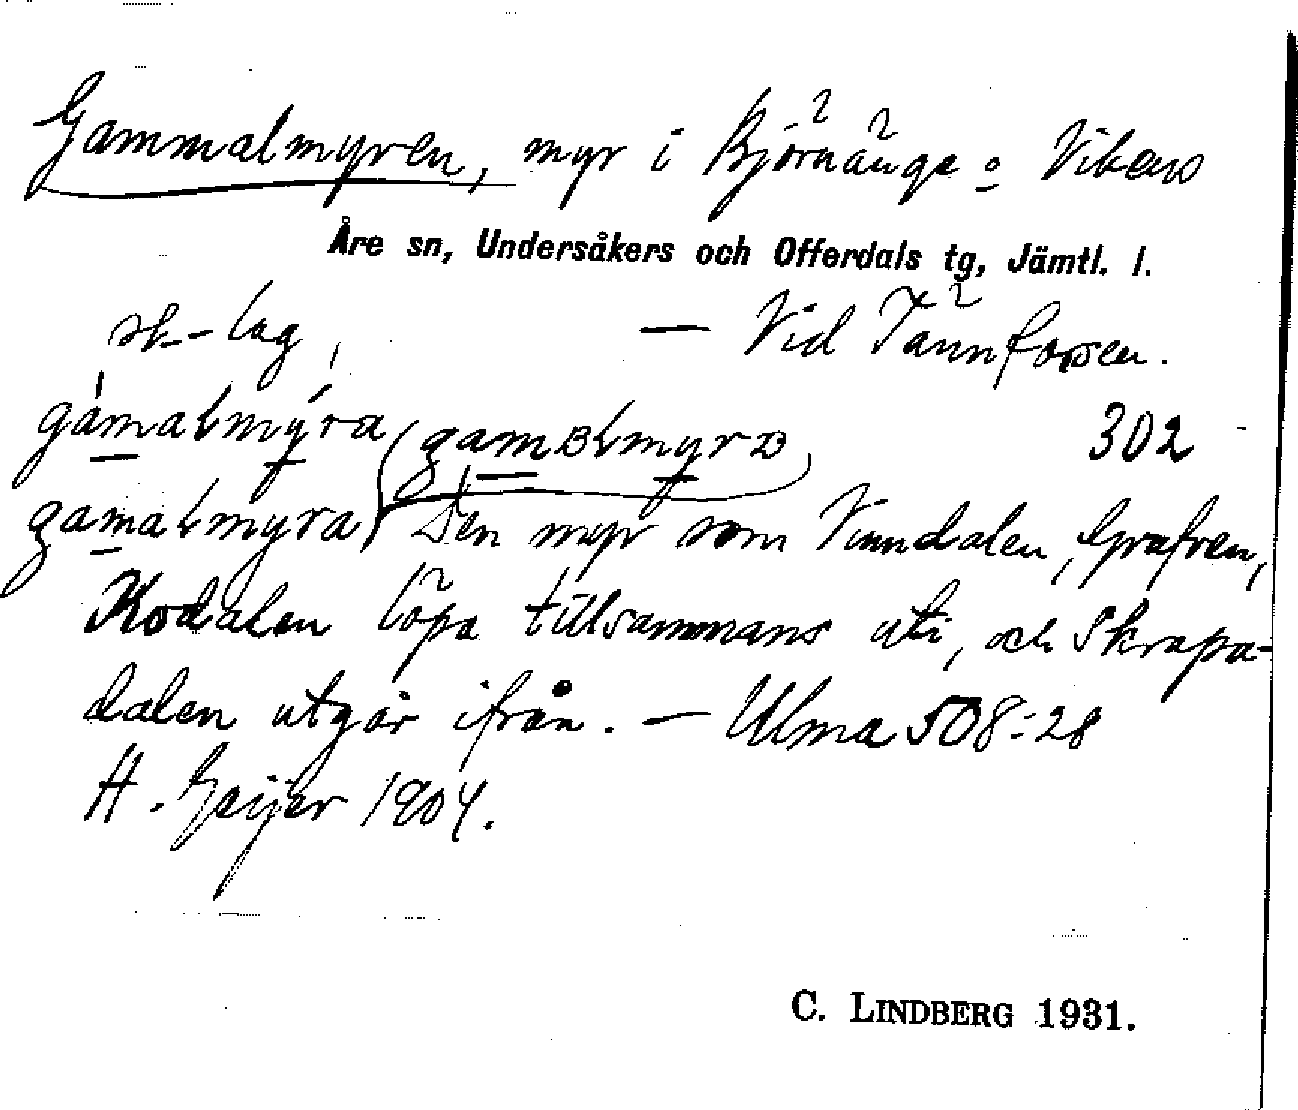 Gammalmyren, myr i Björnänge o Vikens
Åre sn, Undersåkers och Offerdals tg, Jämtl. l.
sk-lag, — Vid Tännforsen.
gámalmýra (gamBLmyrB) 302
gamalmyra) Den myr som Vinndalen, Grafven,
Kodalen löpa tillsammans uti, och Skrapa-
dalen utgår ifrån. — Ulma 508:28
H. Geijer 1904.
C. LINDBERG 1931.